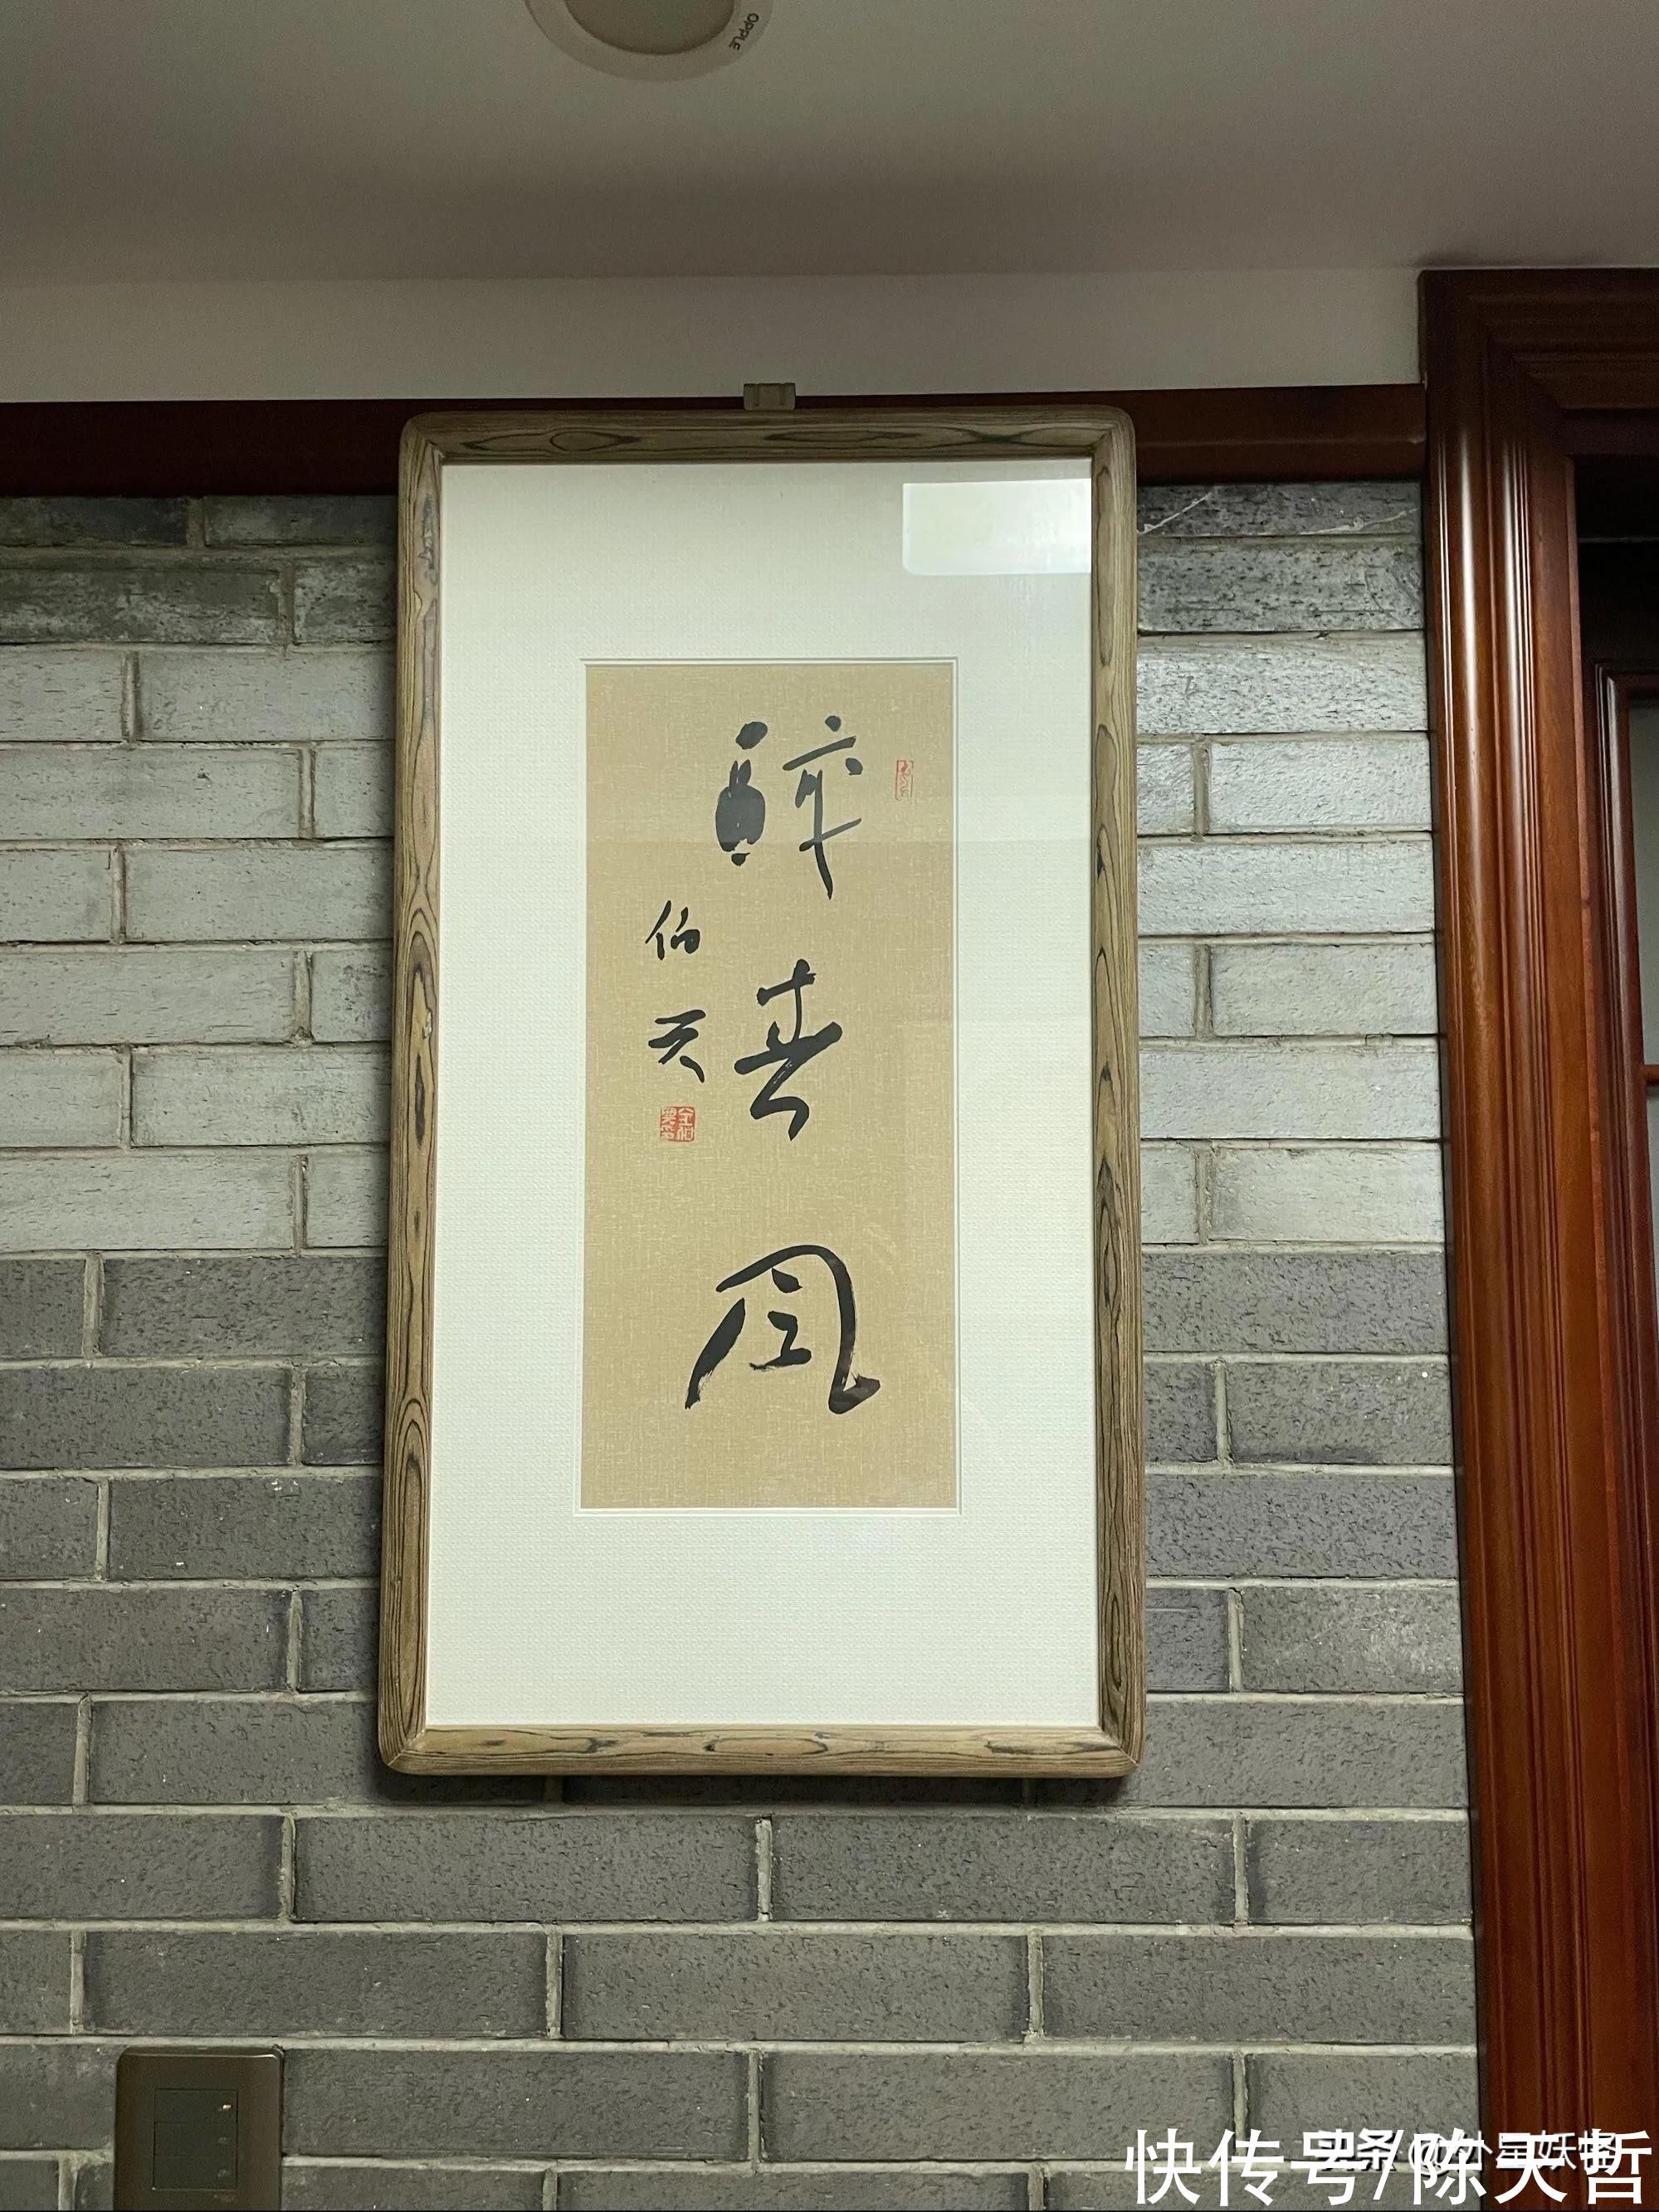 OPPLE
醉春風
伯兴
快传号/陈天哲